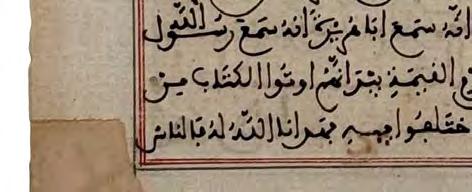 انّهُ سَمِعَ ابَا هُرَيْرَةَ انّهُ سَمِعَ رَسُولَ اللّهِ
الْقِيَمَةِ بَيْدَ انَّهُمْ اوتُوا الْكِتَابَ مِن
خْتَلَفُوا فِيهِ فَهَدَانَا اللّهُ لَهُ فَالنَّاسُ